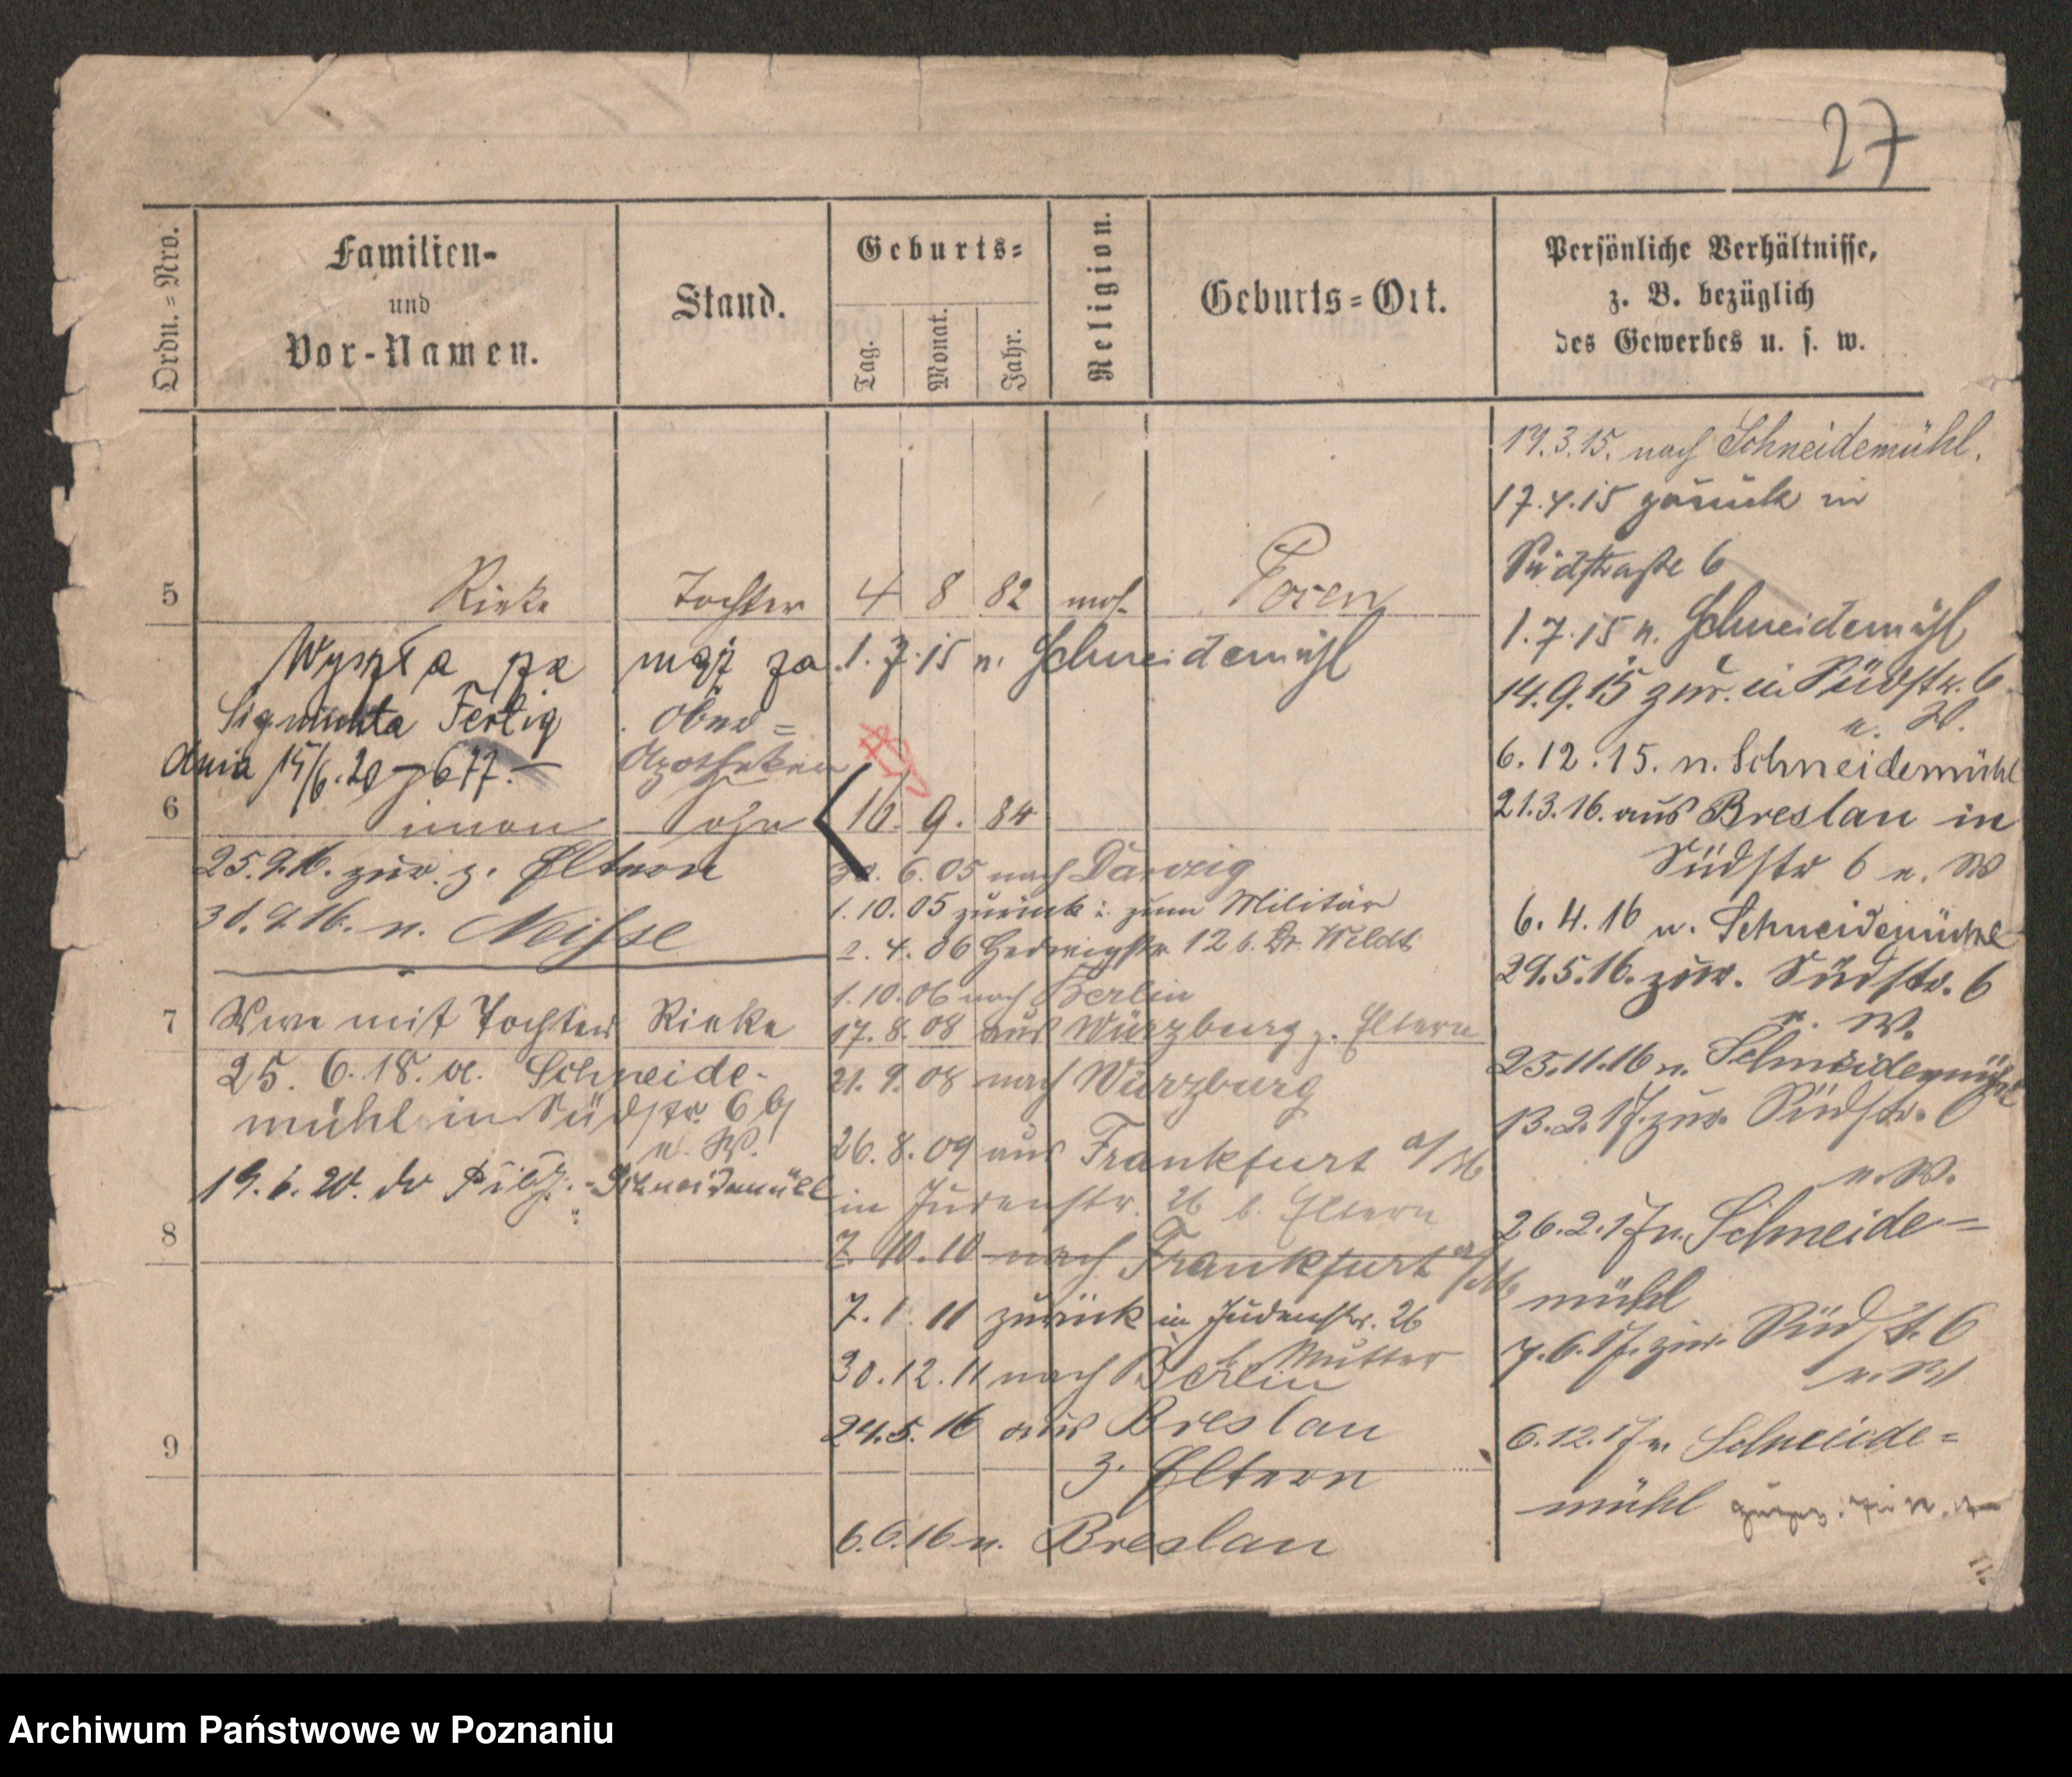 27
Ordn.=Nro.
Familien-
und
Vor-Namen.
Stand.
Geburts=
Tag.
Monat.
Jahr.
Religion.
Geburts=Ort.
Persönliche Verhältnisse,
z. B. bezüglich
des Gewerbes u. s. w.
5 Rieke Tochter 4 8 82 mos. Posen
Wyszła za mąż za 1.7.15 n. Schneidemühl
Sigmunta Fertig
dnia 15/6.20 - 677.-
Ober=
Apotheker
6 Simon Sohn 10. 9. 84
25.9.16. zur. z. Eltern
30.9.16. n. Neisse
7 Wwe mit Tochter Rieke
25. 6. 18. a. Schneide-
mühl in Südstr. 6 b/
n. W.
19. 6. 20. do Schneidemühl
8
9
30. 6. 05 nach Danzig
1. 10. 05 zurück u. zum Militär
2. 4. 06 Hedwigstr. 12 b. Dr. Wildt
1. 10. 06 nach Berlin
17. 8. 08 aus Würzburg z. Eltern
21. 9. 08 nach Würzburg
26. 8. 09 aus Frankfurt a/M
in Judenstr. 26 b. Eltern
7. 10. 10 nach Frankfurt a/M
7. 1. 11 zurück in Judenstr. 26
b. Mutter
30. 12. 11 nach Berlin
24. 5. 16 aus Breslau
z. Eltern
6. 6. 16 n. Breslau
19. 3. 15. nach Schneidemühl.
17. 4. 15 zurück in
Südstraße 6
1. 7. 15 n. Schneidemühl
14. 9. 15 zur. in Südstr. 6
n. W.
6. 12. 15. n. Schneidemühl
21. 3. 16. aus Breslau in
Südstr 6 n. W
6. 4. 16 n. Schneidemühl
29. 5. 16. zur. Südstr. 6
n. W.
25. 11. 16 n. Schneidemühl
13. 2. 17. zur. Südstr. 6
n. W.
26. 2. 17 n. Schneide=
mühl
7. 6. 17. zur. Südst. 6
n. W
6. 12. 17 n. Schneide=
mühl
Archiwum Państwowe w Poznaniu